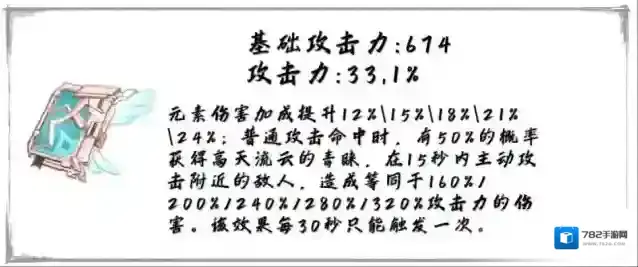 基础攻击力:674
攻击力:33.1%
元素伤害加成提升12%\15%\18%\21%
\24%；普通攻击命中时，有50%的概率
获得高天流云的青睐，在15秒内主动攻
击附近的敌人，造成等同于160%/
200%/240%/280%/320%攻击力的伤
害。该效果每30秒只能触发一次。
782手游网